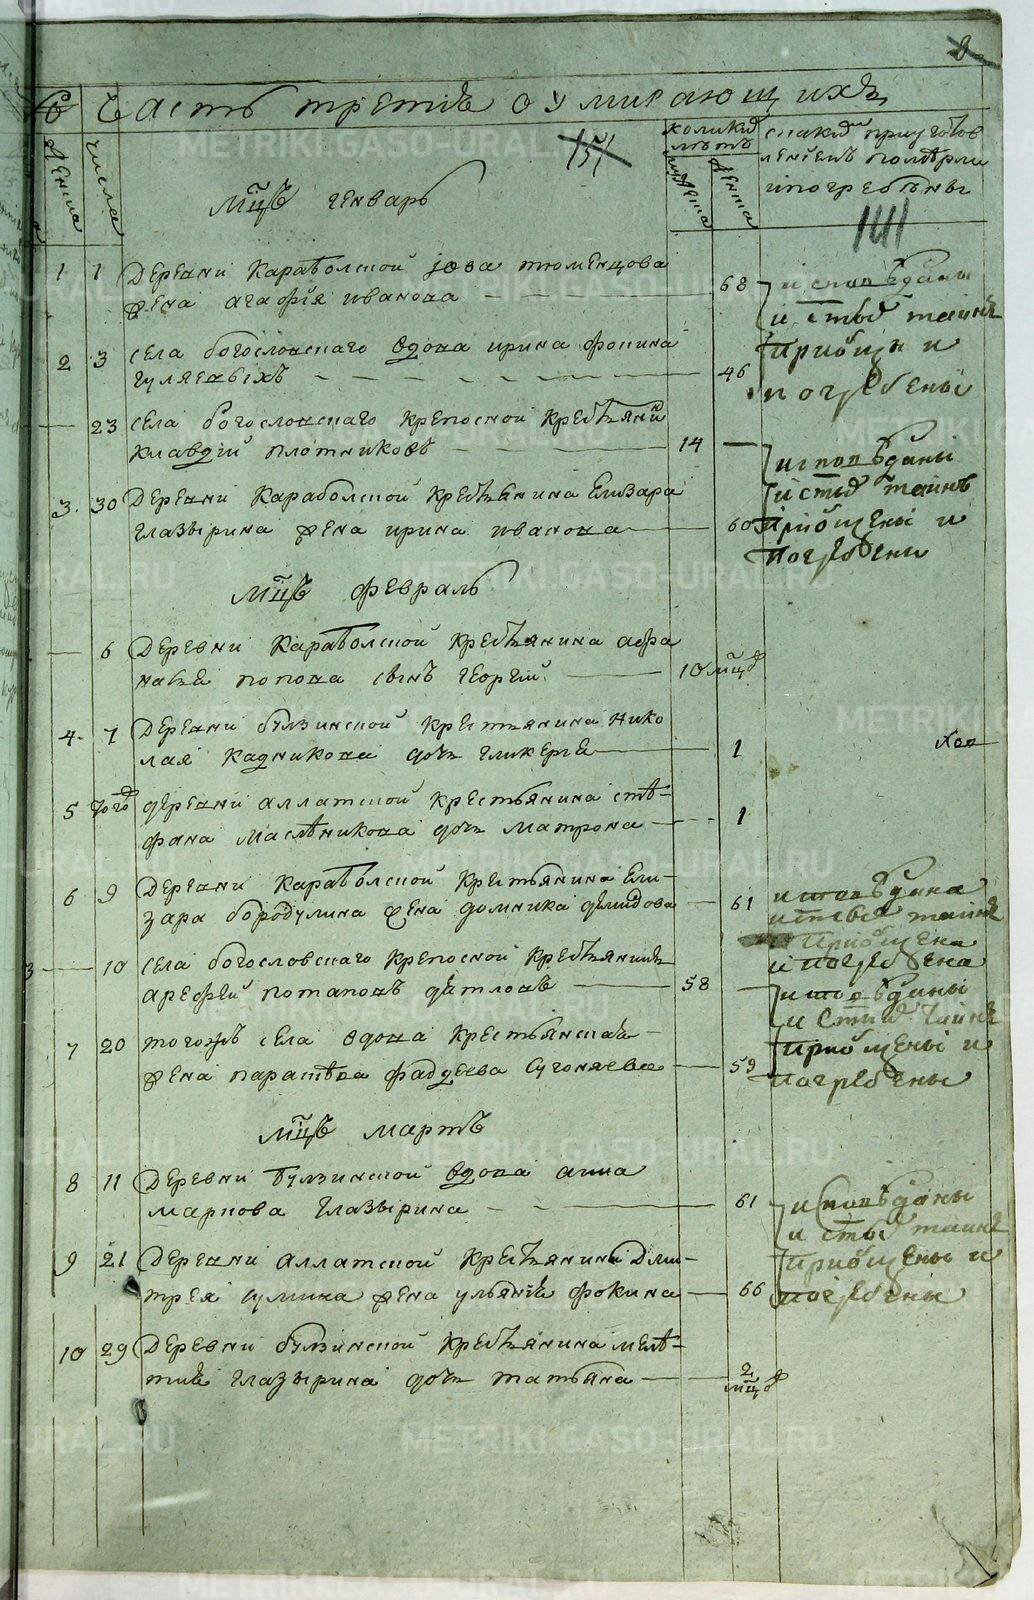 8
Часть третія о умирающихъ
151
женска
числа
коликихъ лѣтъ
мужеска
женска
с каким приуготов
леніемъ померли
и погребены
мц҃ъ генварь
1 1 Деревни Караболской Іова тюменцова
жена агафія иванова 68
исповѣданы
и ст҃ыхъ таинъ
приобщены и
погребены
2 3 села богословскаго вдова ирина фокина
гуляевыхъ 46
23 села богословскаго крепосной крестьянинъ
клавдій плотниковъ 14
исповѣданы
и ст҃ыхъ таинъ
приобщены и
погребены
3 30 Деревни Караболской крестьянина Елизара
глазырина жена ирина иванова 60
мц҃ъ февраль
6 Деревни Караболской крестьянина афа
насья попова сынъ георгій 10 мцовъ
4 7 Деревни булзинской крестьянина нико
лая кадникова дочь гликерія 1
5 того деревни аллатской крестьянина сте-
фана масленикова дочь матрона 1
6 9 Деревни Караболской крестьянина Ели-
зара бородулина жена домника демидова 61
исповѣдана
и ст҃ыхъ таинъ
приобщена
и погребена
10 села богословскаго крепосной крестьянинъ
арефей потаповъ детловъ 58
исповѣданы
и ст҃ыхъ таинъ
приобщены и
погребены
7 20 тогожъ села вдова крестьянская
жена параскева фадѣева 59
мц҃ъ мартъ
8 11 Деревни Булзинской вдова анна
маркова глазырина 61
исповѣданы
и ст҃ыхъ таинъ
приобщены и
погребены
9 21 Деревни аллатской крестьянина Дми-
трея жена ульянія фокина 66
10 29 Деревни булзинской крестьянина меле-
тия глазырина дочь татьяна 2 мцовъ
METRIKI.GASO-URAL.RU